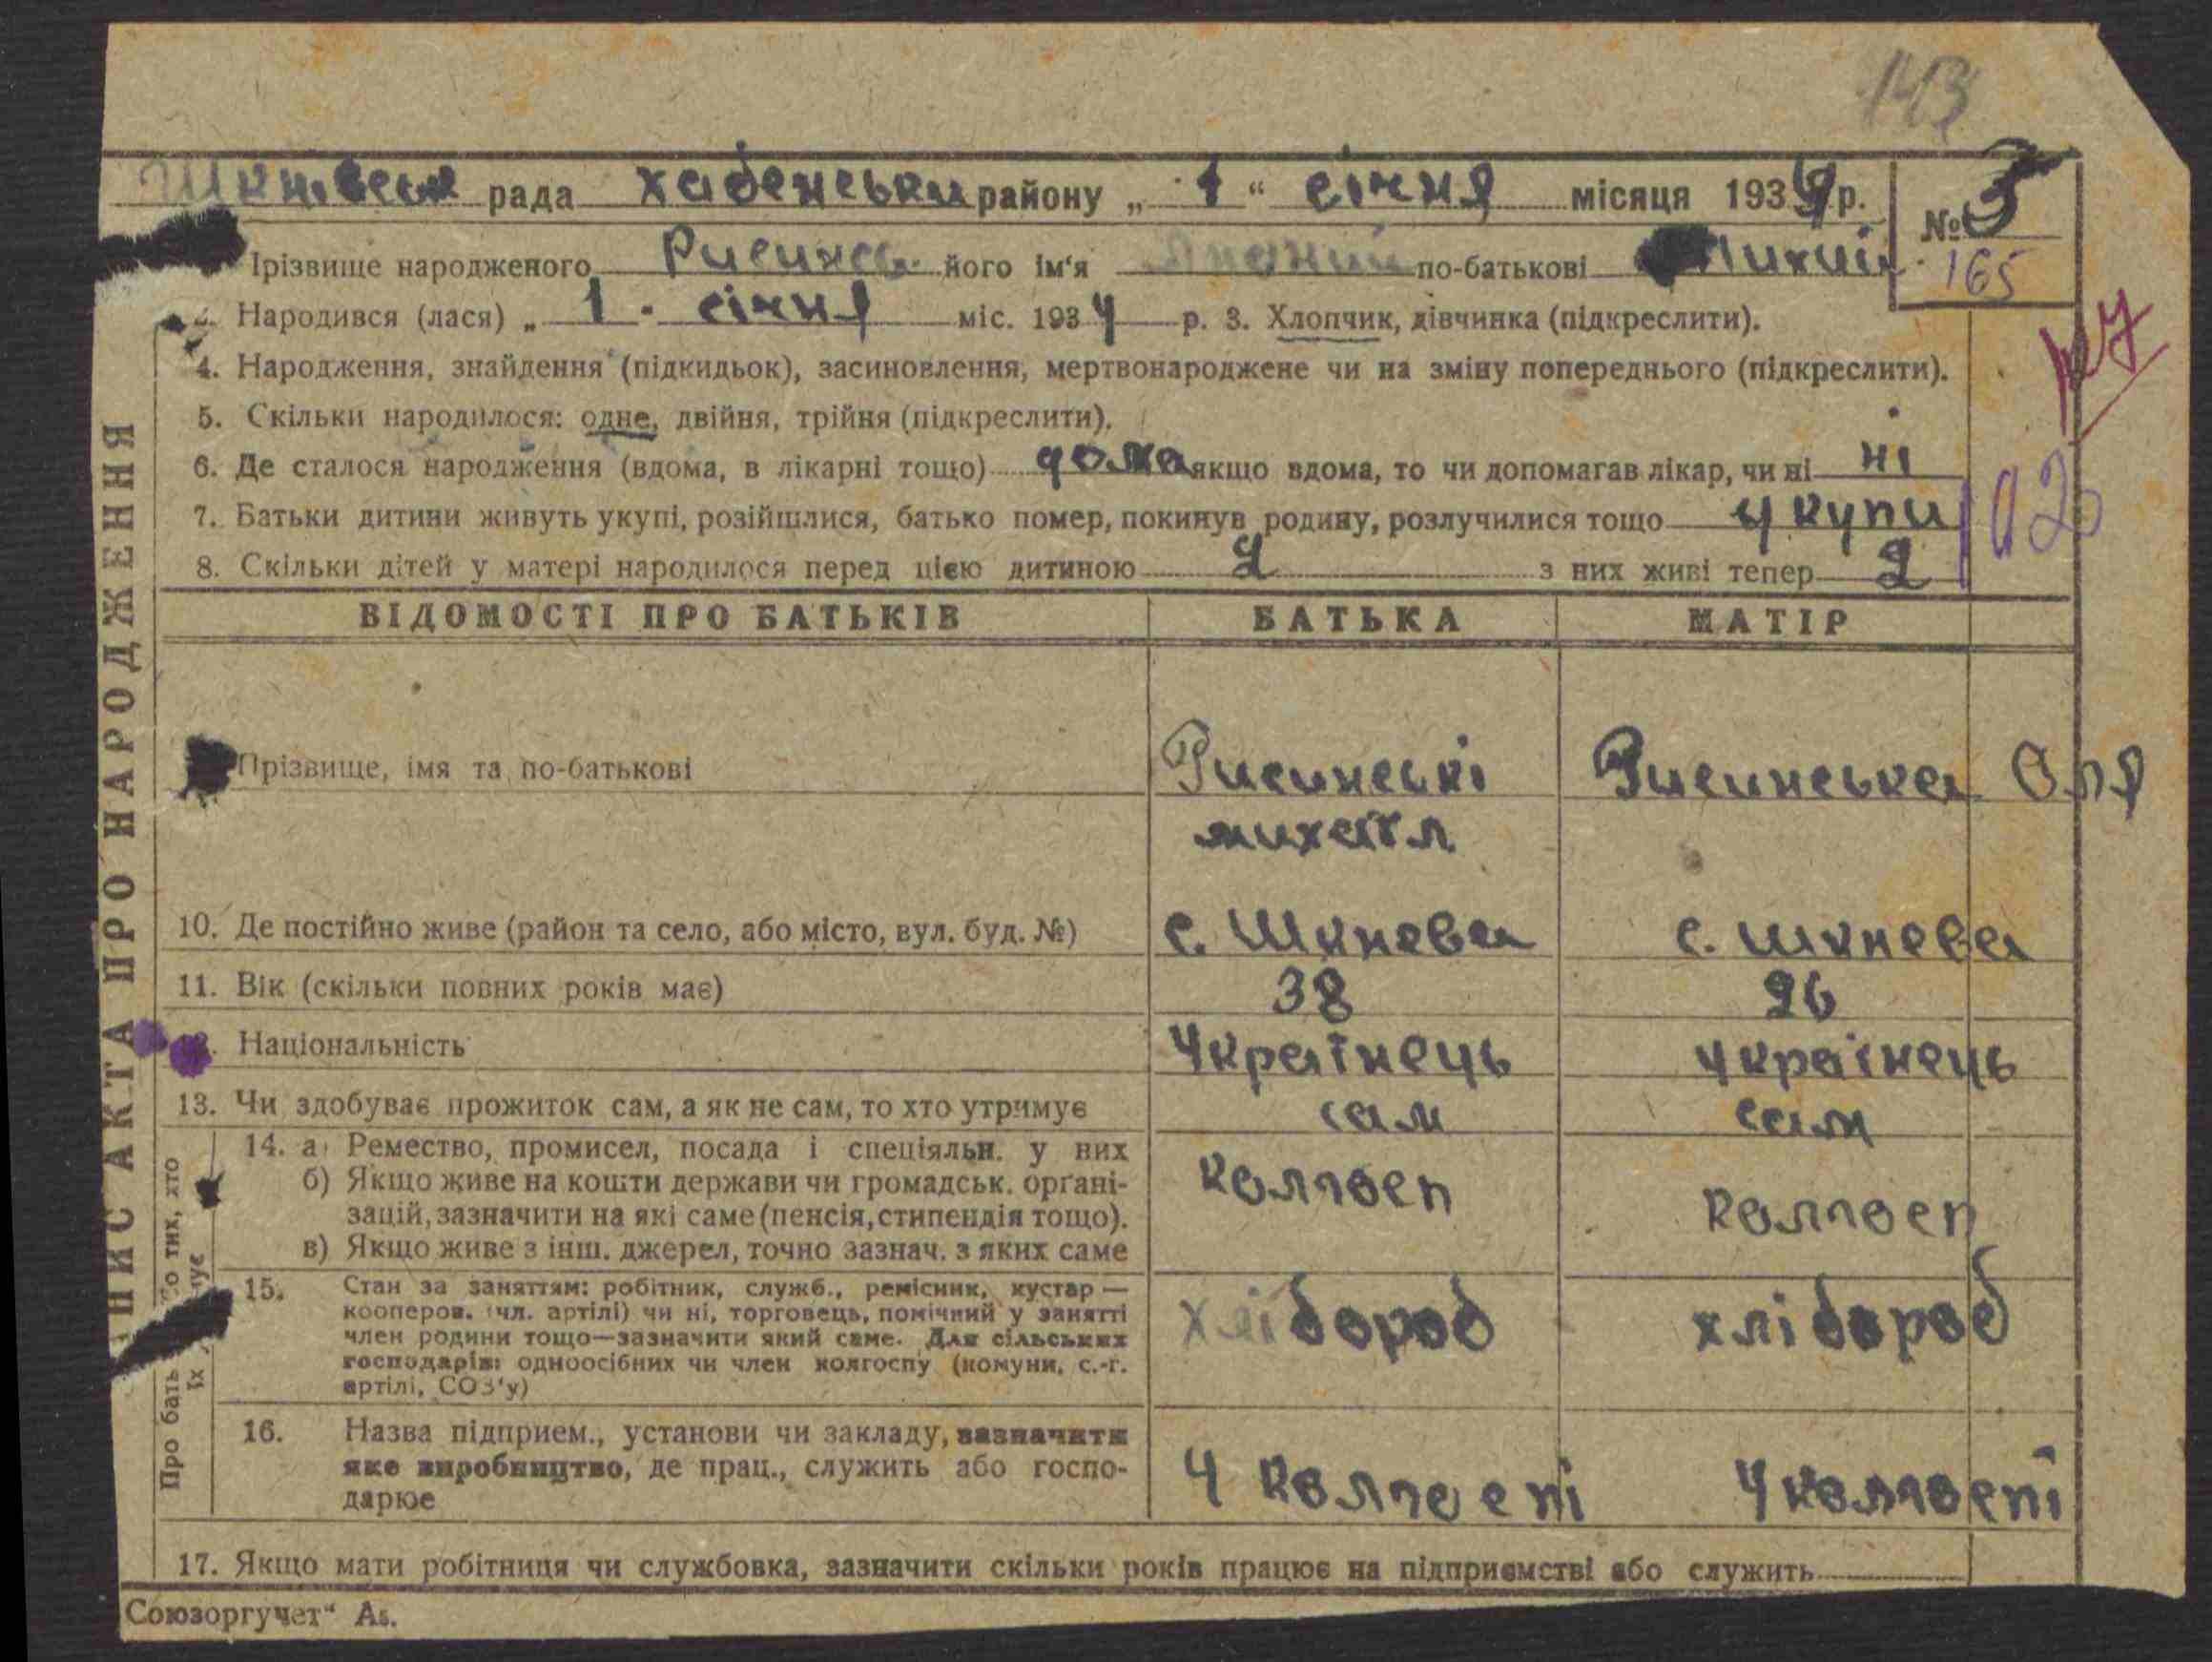 143
Шкнівська рада хабенський району „ 1 “ січня місяця 1934 р. № 5
Прізвище народженого Рисинсь його ім'я по-батькові Михай 165
2. Народився (лася) „ 1 - січня міс. 1934 р. 3. Хлопчик, дівчинка (підкреслити).
4. Народження, знайдення (підкидьок), засиновлення, мертвонароджене чи на зміну попереднього (підкреслити).
5. Скільки народилося: одне, двійня, трійня (підкреслити).
6. Де сталося народження (вдома, в лікарні тощо) дома якщо вдома, то чи допомагав лікар, чи ні ні
7. Батьки дитини живуть укупі, розійшлися, батько помер, покинув родину, розлучилися тощо укупи
8. Скільки дітей у матері народилося перед цією дитиною 2 з них живі тепер 2
ВІДОМОСТІ ПРО БАТЬКІВ БАТЬКА МАТІР
Прізвище, імя та по-батькові Рисинські Рисинська Оля
михаїл
10. Де постійно живе (район та село, або місто, вул. буд. №) с. Шкнева с. шкнева
11. Вік (скільки повних років має) 38 26
12. Національність Українець українець
13. Чи здобуває прожиток сам, а як не сам, то хто утримує сам сам
14. а) Ремество, промисел, посада і спеціяльн. у них
б) Якщо живе на кошти держави чи громадськ. органі-
зацій, зазначити на які саме (пенсія, стипендія тощо).
в) Якщо живе з інш. джерел, точно зазнач. з яких саме
колгосп колгосп
15. Стан за заняттям: робітник, служб., ремісник, кустар —
кооперов. (чл. артілі) чи ні, торговець, помічний у занятті
член родини тощо—зазначити який саме. Для сільських
господарів: одноосібних чи член колгоспу (комуни, с.-г.
артілі, СОЗ'у)
хлібороб хлібороб
16. Назва підприєм., установи чи закладу, зазначити
яке виробництво, де прац., служить або госпо-
дарює
У колгоспі У колгоспі
17. Якщо мати робітниця чи службовка, зазначити скільки років працює на підприємстві або служить
Союзоргучет“ Аз.
ПИС АКТА ПРО НАРОДЖЕННЯ